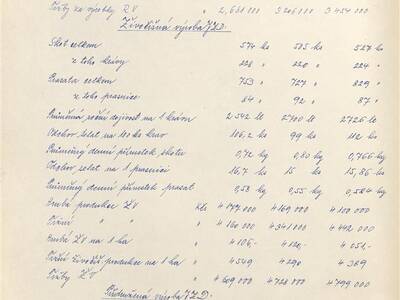 Tržby za výrobky RV " 2,688 000 3 206 000 3 454 000
Živočišná výroba JZD.
Skot celkem 574 ks 585 ks 527 ks
z toho krávy 228 " 220 " 224 "
Prasata celkem 753 " 727 " 829 "
z toho prasnice 64 " 92 " 87 "
Průměrná roční dojivost na 1 krávu 2542 lt 2700 lt 2726 lt
Odchov telat na 100 ks krav 106,2 ks 99 ks 112 ks
Průměrný denní přírůstek skotu 0,72 kg 0,80 kg 0,766 kg
Odchov selat na 1 prasnici 16,7 ks 15 ks 15,86 ks
Průměrný denní přírůstek prasat 0,53 kg 0,55 kg 0,584 kg
Hrubá produkce ŽV Kčs 4 177 000 4 169 000 4 100 000
Tržní " " " 4 160 000 4 341 000 4 442 000
Hrubá ŽV na 1 ha " 4 106.- 4 120.- 4 051.-
Tržní živočiš. produkce na 1 ha " 4 549 4 290 4 389
Tržby ŽV " 4 609 000 4 728 000 4 799 000
Přidružená výroba JZD.